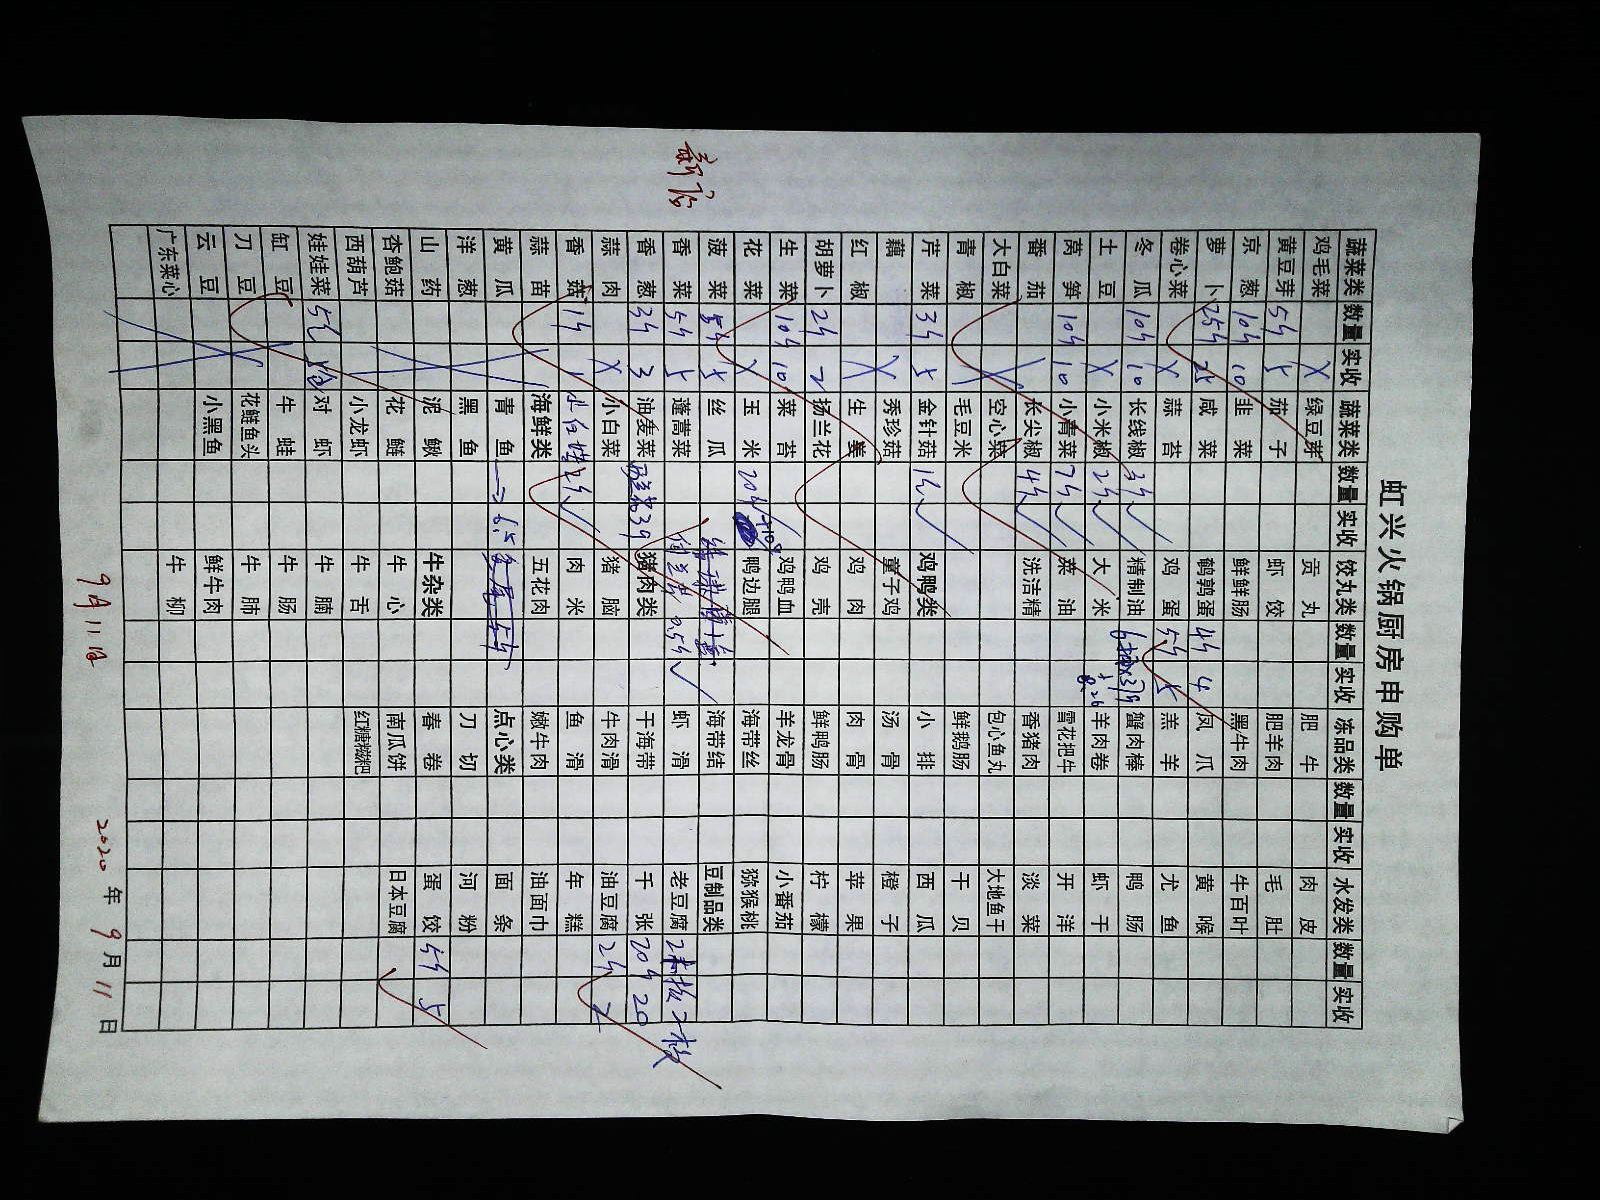 虹兴火锅厨房申购单
新店
蔬菜类 数量 实收 蔬菜类 数量 实收 饺丸类 数量 实收 冻品类 数量 实收 水发类 数量 实收
鸡毛菜 X 绿豆芽 贡丸 肥牛 肉皮
黄豆芽 5斤 5 茄子 虾饺 肥羊肉 毛肚
京葱 10斤 10 韭菜 鲜鲜肠 黑牛肉 牛百叶
萝卜 25斤 25 咸菜 鹌鹑蛋 4斤 4 凤爪 黄喉
卷心菜 X 蒜苔 鸡蛋 5斤 5 羔羊 尤鱼
冬瓜 10斤 10 长线椒 3斤 精制油 蟹肉棒 鸭肠
土豆 X 小米椒 2斤 大米 羊肉卷 虾干
莴笋 10斤 10 小青菜 7斤 菜油 雪花把牛 开洋
番茄 X 长尖椒 4斤 洗洁精 香猪肉 淡菜
大白菜 空心菜 包心鱼丸 大地鱼干
青椒 X 毛豆米 鲜鹅肠 干贝
芹菜 3斤 5 金针菇 1斤 鸡鸭类 小排 西瓜
藕 X 秀珍菇 童子鸡 汤骨 橙子
红椒 X 生姜 鸡肉 肉骨 苹果
胡萝卜 2斤 2 扬兰花 鸡壳 鲜鸭肠 柠檬
生菜 10斤 10 菜苔 鸡鸭血 羊龙骨 小番茄
花菜 X 玉米 20斤 鸭边腿 海带丝 猕猴桃
菠菜 5斤 5 丝瓜 海带结 豆制品类
香菜 5斤 5 蓬蒿菜 0.5斤 虾滑 老豆腐 2板 2板
香葱 3斤 3 油麦菜 猪肉类 干海带 千张 20斤 20
蒜肉 X 小白菜 猪脑 牛肉滑 油豆腐 2斤 2
香菇 1斤 1 肉米 鱼滑 年糕
蒜苗 海鲜类 五花肉 嫩牛肉 油面巾
黄瓜 青鱼 6.5 点心类 面条
洋葱 黑鱼 刀切 河粉
山药 泥鳅 牛杂类 春卷 蛋饺 5斤 5
杏鲍菇 花鲢 牛心 南瓜饼 日本豆腐
西葫芦 小龙虾 牛舌 红糖糍粑
娃娃菜 5包 5包 对虾 牛腩
缸豆 牛蛙 牛肠
刀豆 花鲢鱼头 牛肺
云豆 小黑鱼 鲜牛肉
广东菜心 牛柳
9月11日
2020年9月11日